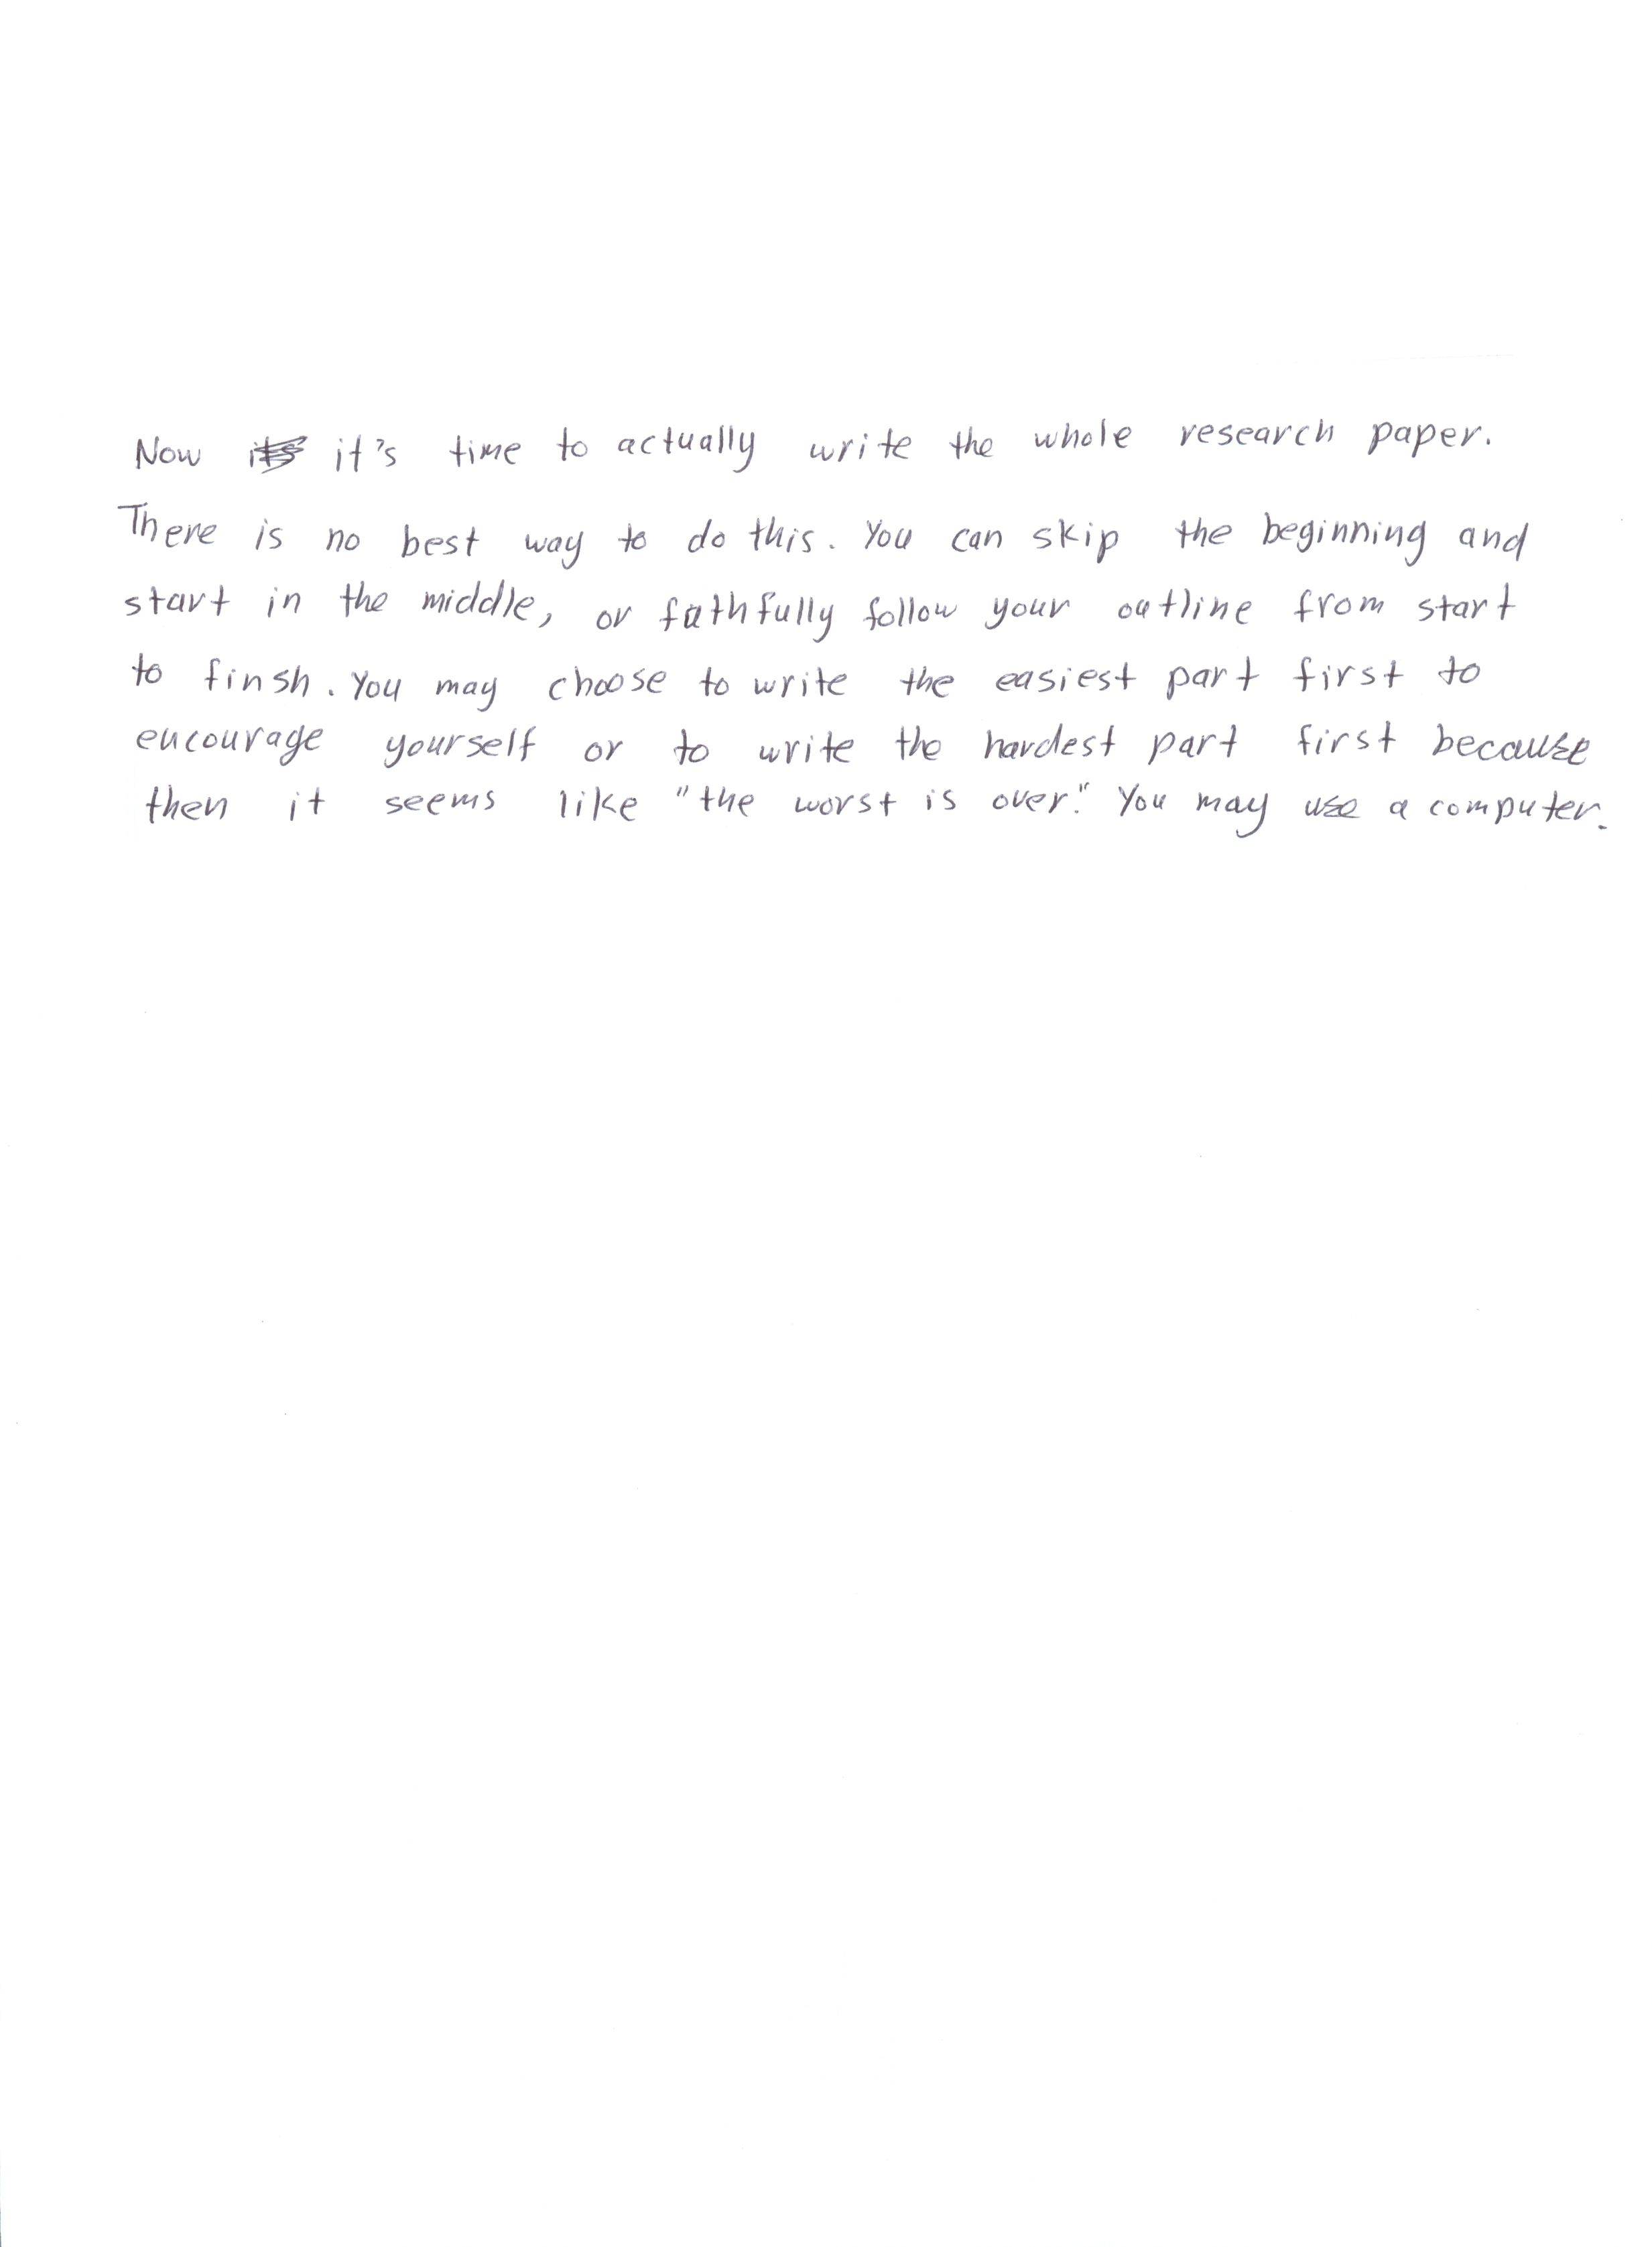 Now its it's time to actually write the whole research paper.
There is no best way to do this. You can skip the beginning and
start in the middle, or fathfully follow your outline from start
to finsh. You may choose to write the easiest part first to
encourage yourself or to write the hardest part first because
then it seems like "the worst is over." You may use a computer.